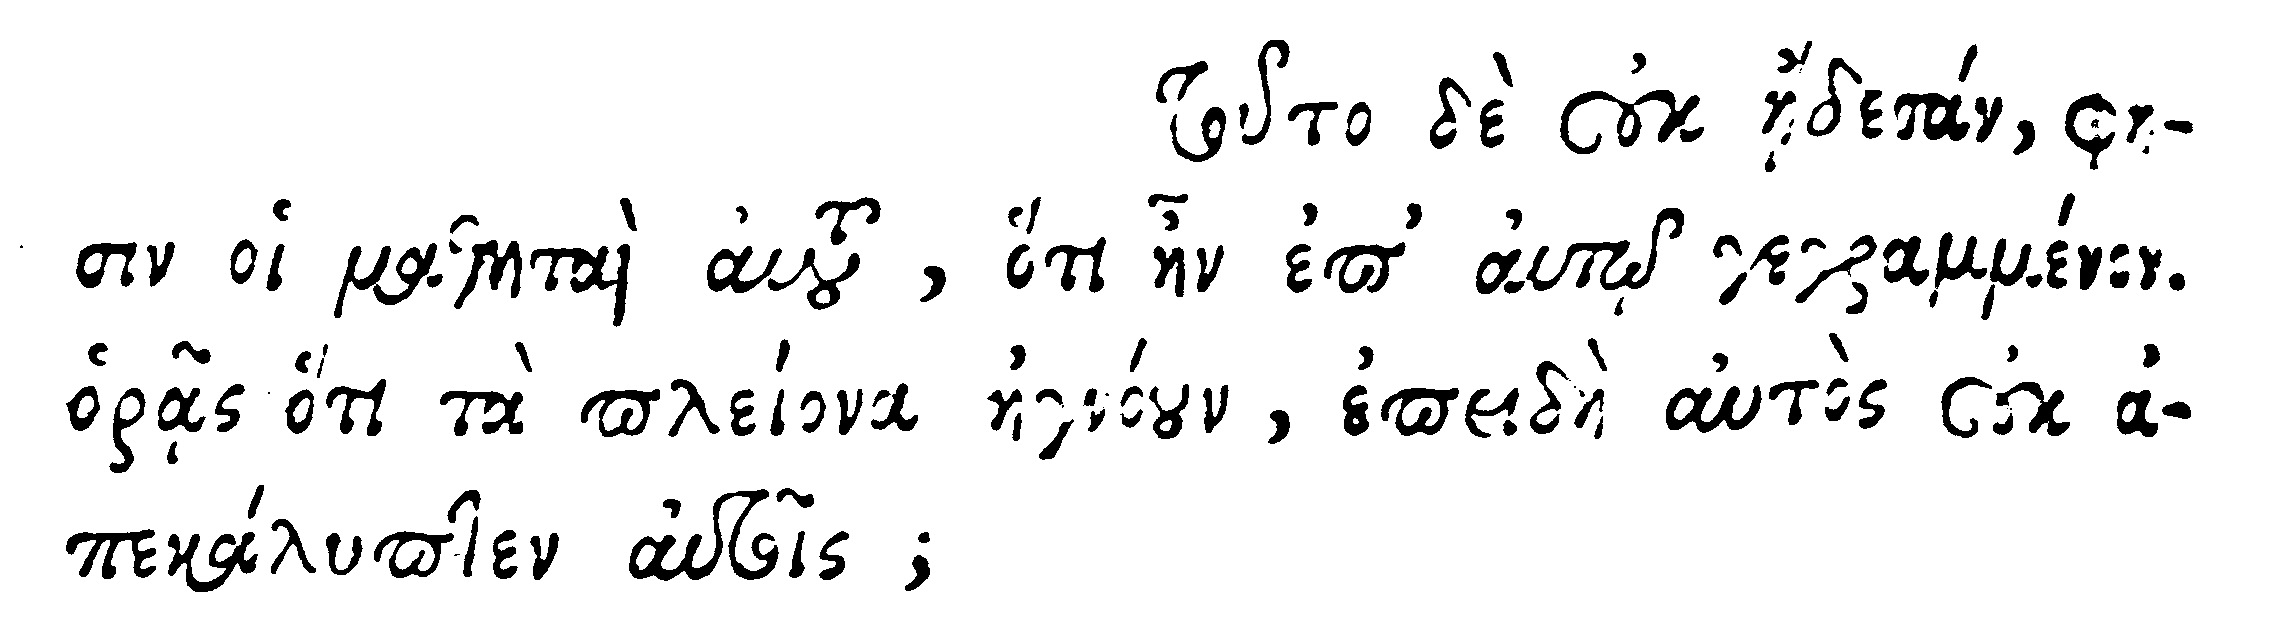 Τοῦτο δὲ οὐκ ᾔδεισάν, φη-
σιν οἱ μαθηταὶ αὐτοῦ, ὅτι ἦν ἐπ' αὐτῷ γεγραμμένον.
ὁρᾷς ὅτι τὰ πλείονα ἠγνόουν, ἐπειδὴ αὐτὸς οὐκ ἀ-
πεκάλυπτεν αὐτοῖς ;